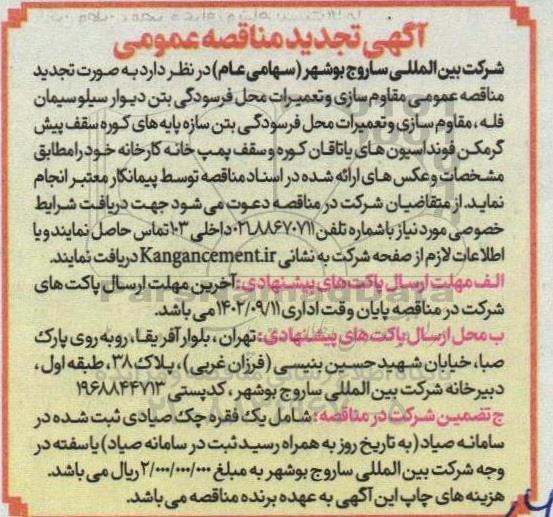 آگهی تجدید مناقصه عمومی
شرکت بین المللی ساروج بوشهر (سهامی عام) در نظر دارد به صورت تجدید
مناقصه عمومی مقاوم سازی و تعمیرات محل فرسودگی بتن دیوار سیلو سیمان
فله ، مقاوم سازی و تعمیرات محل فرسودگی بتن سازه پایه های کوره سقف پیش
گرمکن فونداسیون های یاتاقان کوره و سقف پمپ خانه کارخانه خود را مطابق
مشخصات و عکس های ارائه شده در اسناد مناقصه توسط پیمانکار معتبر انجام
نماید. از متقاضیان شرکت در مناقصه دعوت می شود جهت دریافت شرایط
خصوصی مورد نیاز با شماره تلفن ۰۲۱۸۸۶۷۰۷۱۱ داخلی ۱۰۳ تماس حاصل نمایند و یا
اطلاعات لازم از صفحه شرکت به نشانی Kangancement.ir دریافت نمایند.
الف مهلت ارسال پاکت های پیشنهادی: آخرین مهلت ارسال پاکت های
شرکت در مناقصه پایان وقت اداری ۱۴۰۲/۰۹/۱۱ می باشد.
ب محل ارسال پاکت های پیشنهادی: تهران ، بلوار آفریقا، روبه روی پارک
صبا، خیابان شهید حسین بنیسی (فرزان غربی) ، پلاک ۳۸، طبقه اول ،
دبیرخانه شرکت بین المللی ساروج بوشهر ، کدپستی ۱۹۶۸۸۴۴۷۱۳
ج تضمین شرکت در مناقصه: شامل یک فقره چک صیادی ثبت شده در
سامانه صیاد (به تاریخ روز به همراه رسید ثبت در سامانه صیاد) یا سفته در
وجه شرکت بین المللی ساروج بوشهر به مبلغ ۲/۰۰۰/۰۰۰/۰۰۰ ریال می باشد.
هزینه های چاپ این آگهی به عهده برنده مناقصه می باشد.